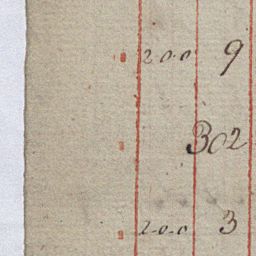 2-0-0 9
302
2-0-0 3